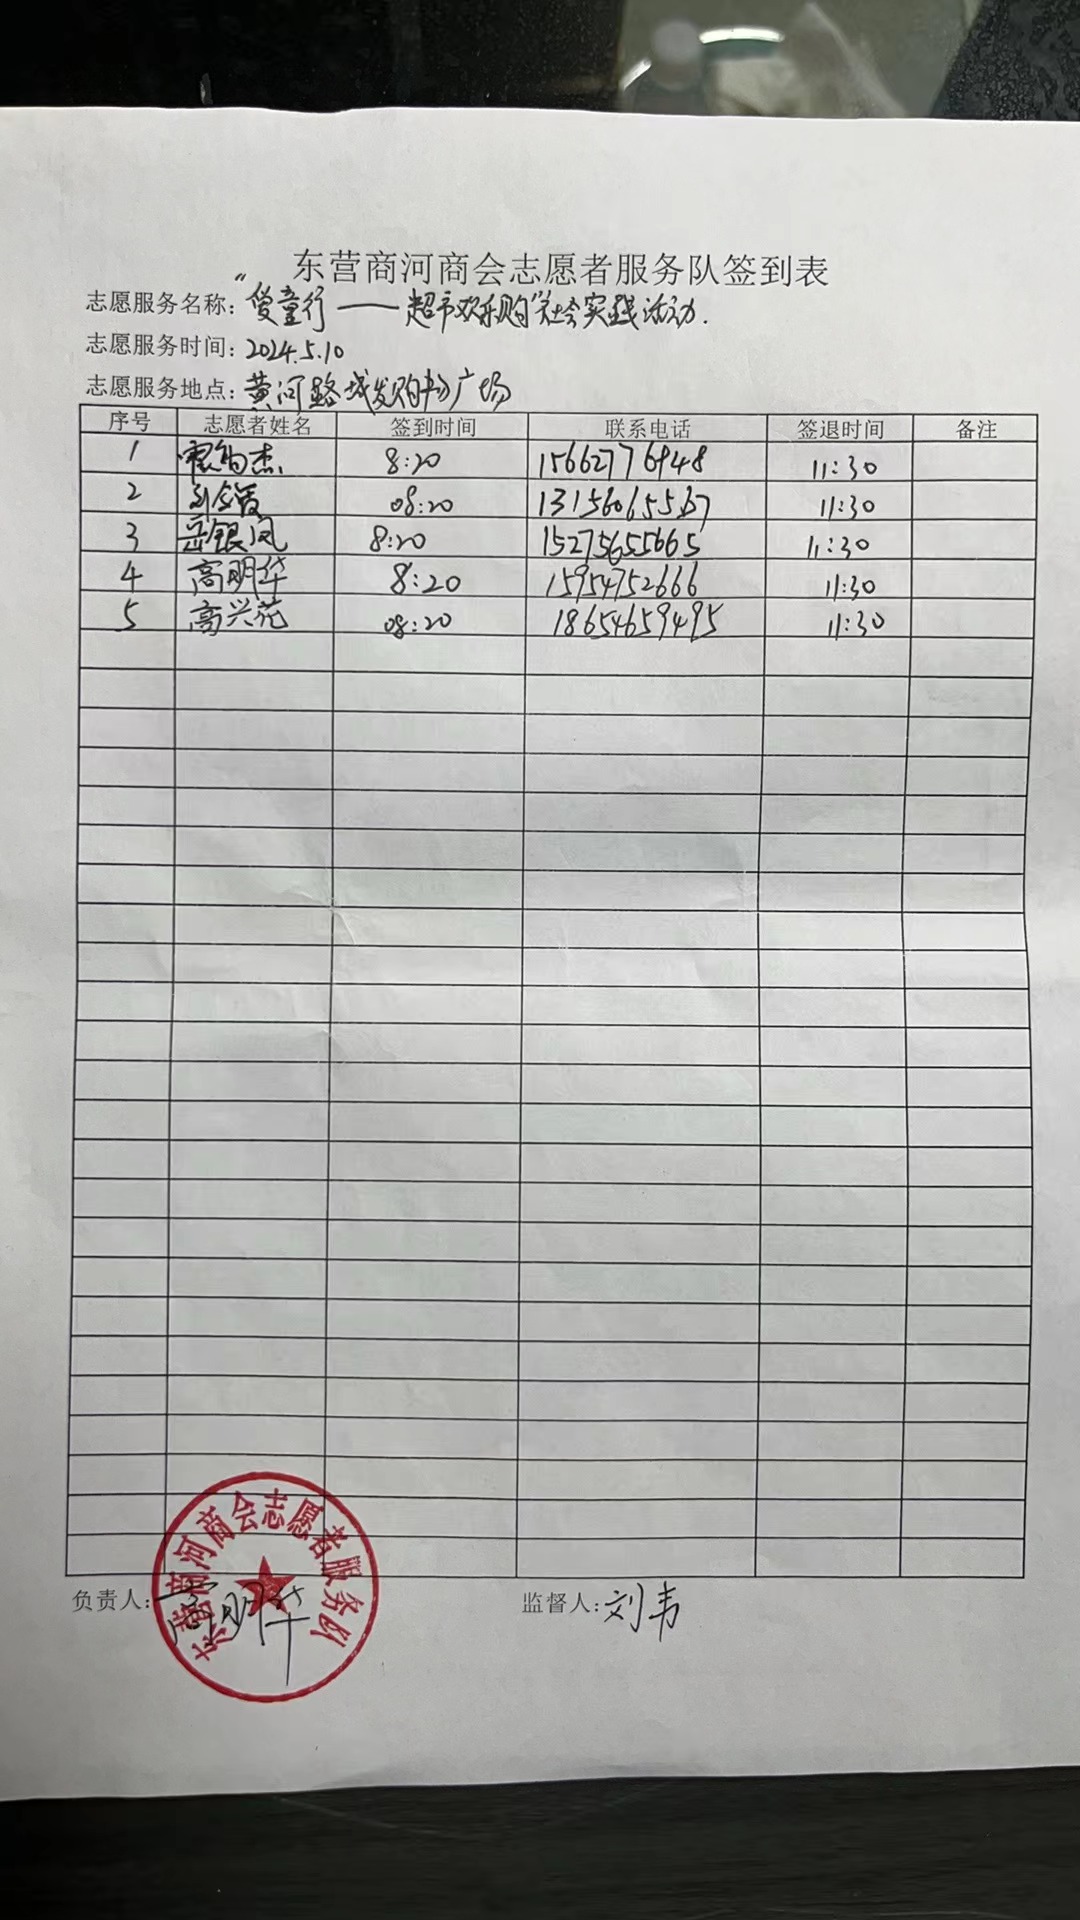 东营商河商会志愿者服务队签到表
志愿服务名称：“爱童行——超市欢乐购”社会实践活动.
志愿服务时间：2024.5.10
志愿服务地点：黄河路城发购物广场
序号 志愿者姓名 签到时间 联系电话 签退时间 备注
1 杰 8:20 15662776948 11:30
2 08:20 13156065567 11:30
3 岳银凤 8:20 15275655665 11:30
4 高明华 8:20 15954752666 11:30
5 高兴花 08:20 18654659495 11:30
负责人：高明华 监督人：刘韦
东营商河商会志愿者服务队